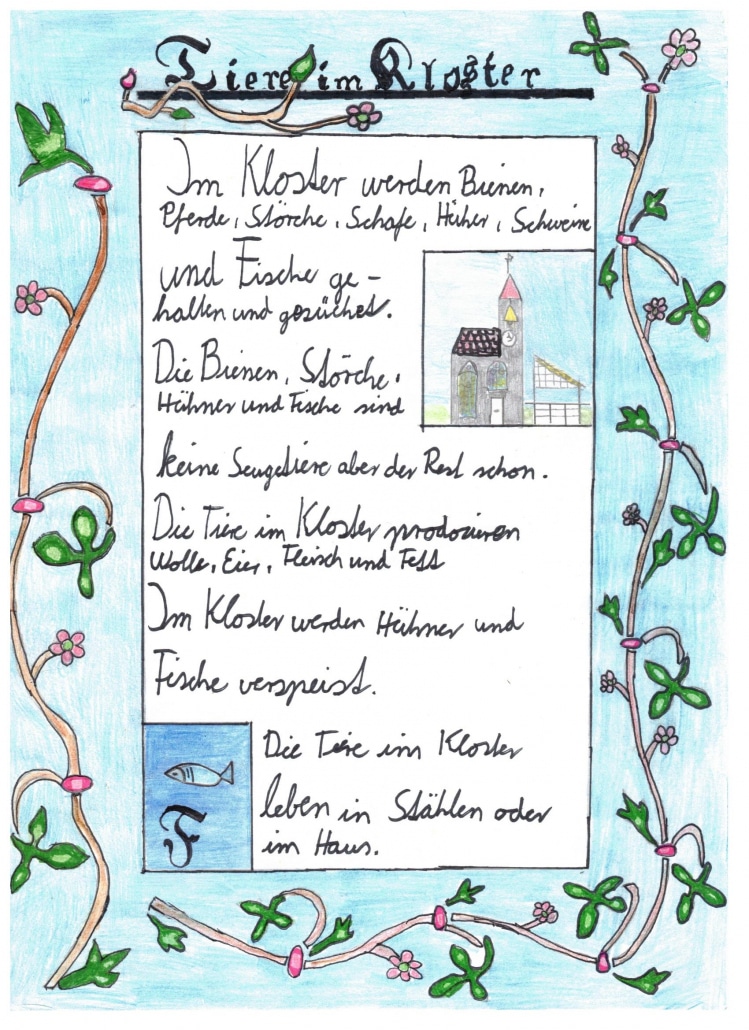 Tiere im Kloster
Im Kloster werden Bienen,
Pferde, Störche, Schafe, Hüher, Schweine
und Fische ge-
halten und gezüchtet.
Die Bienen, Störche,
Hühner und Fische sind
keine Seugetiere aber der Rest schon.
Die Tiere im Kloster produzieren
Wolle, Eier, Fleisch und Fett
Im Kloster werden Hühner und
Fische verspeist.
Die Tiere im Kloster
leben in Stählen oder
im Haus.
F